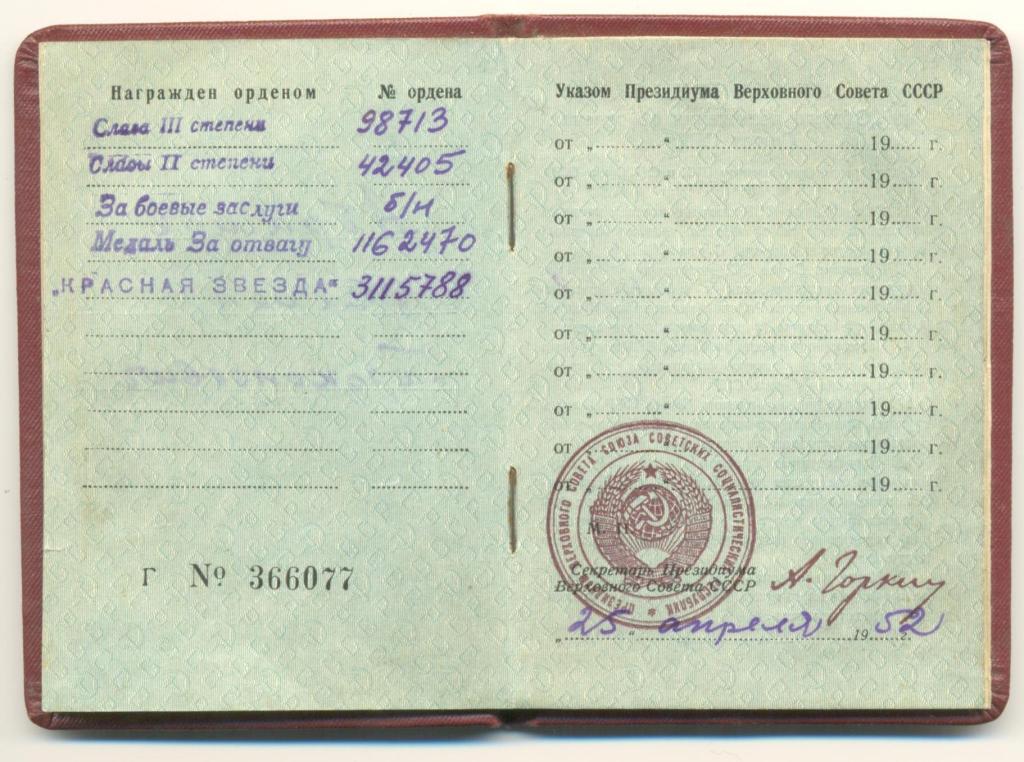 Награжден орденом № ордена
Слава III степени 98713
Славы II степени 42405
За боевые заслуги б/н
Медаль За отвагу 1162470
„КРАСНАЯ ЗВЕЗДА" 3115788
Г № 366077
Указом Президиума Верховного Совета СССР
от „ “ 19 г.
от „ “ 19 г.
от „ “ 19 г.
от „ “ 19 г.
от „ “ 19 г.
от „ “ 19 г.
от „ “ 19 г.
от „ “ 19 г.
от „ “ 19 г.
от „ “ 19 г.
ПРЕЗИДИУМ ВЕРХОВНОГО СОВЕТА СОЮЗА СОВЕТСКИХ СОЦИАЛИСТИЧЕСКИХ РЕСПУБЛИК
М. П.
Секретарь Президиума
Верховного Совета СССР А. Горкин
„25“ апреля 1952 г.